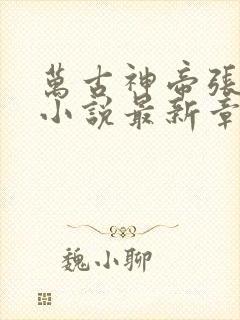 萬古神帝張
小說最新章
魏小聊